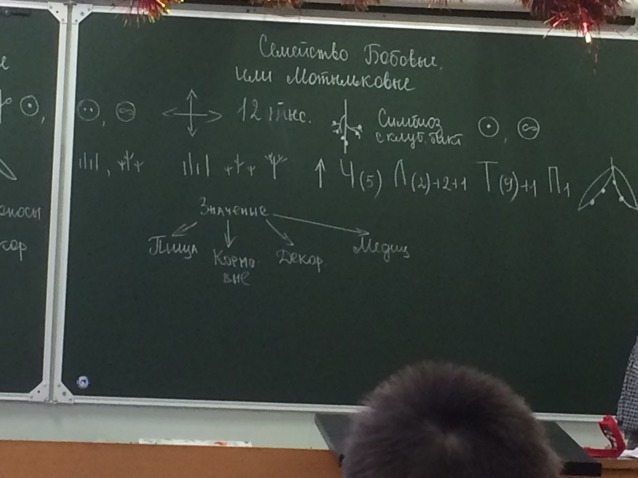 Семейство Бобовые.
или Мотыльковые
12 тыс.
Симбиоз
с клуб. бакт
↑ Ч(5) Л(2)+2+1 Т(9)+1 П1
Значение
Пища
Кормо
вые
Декор
Медиц